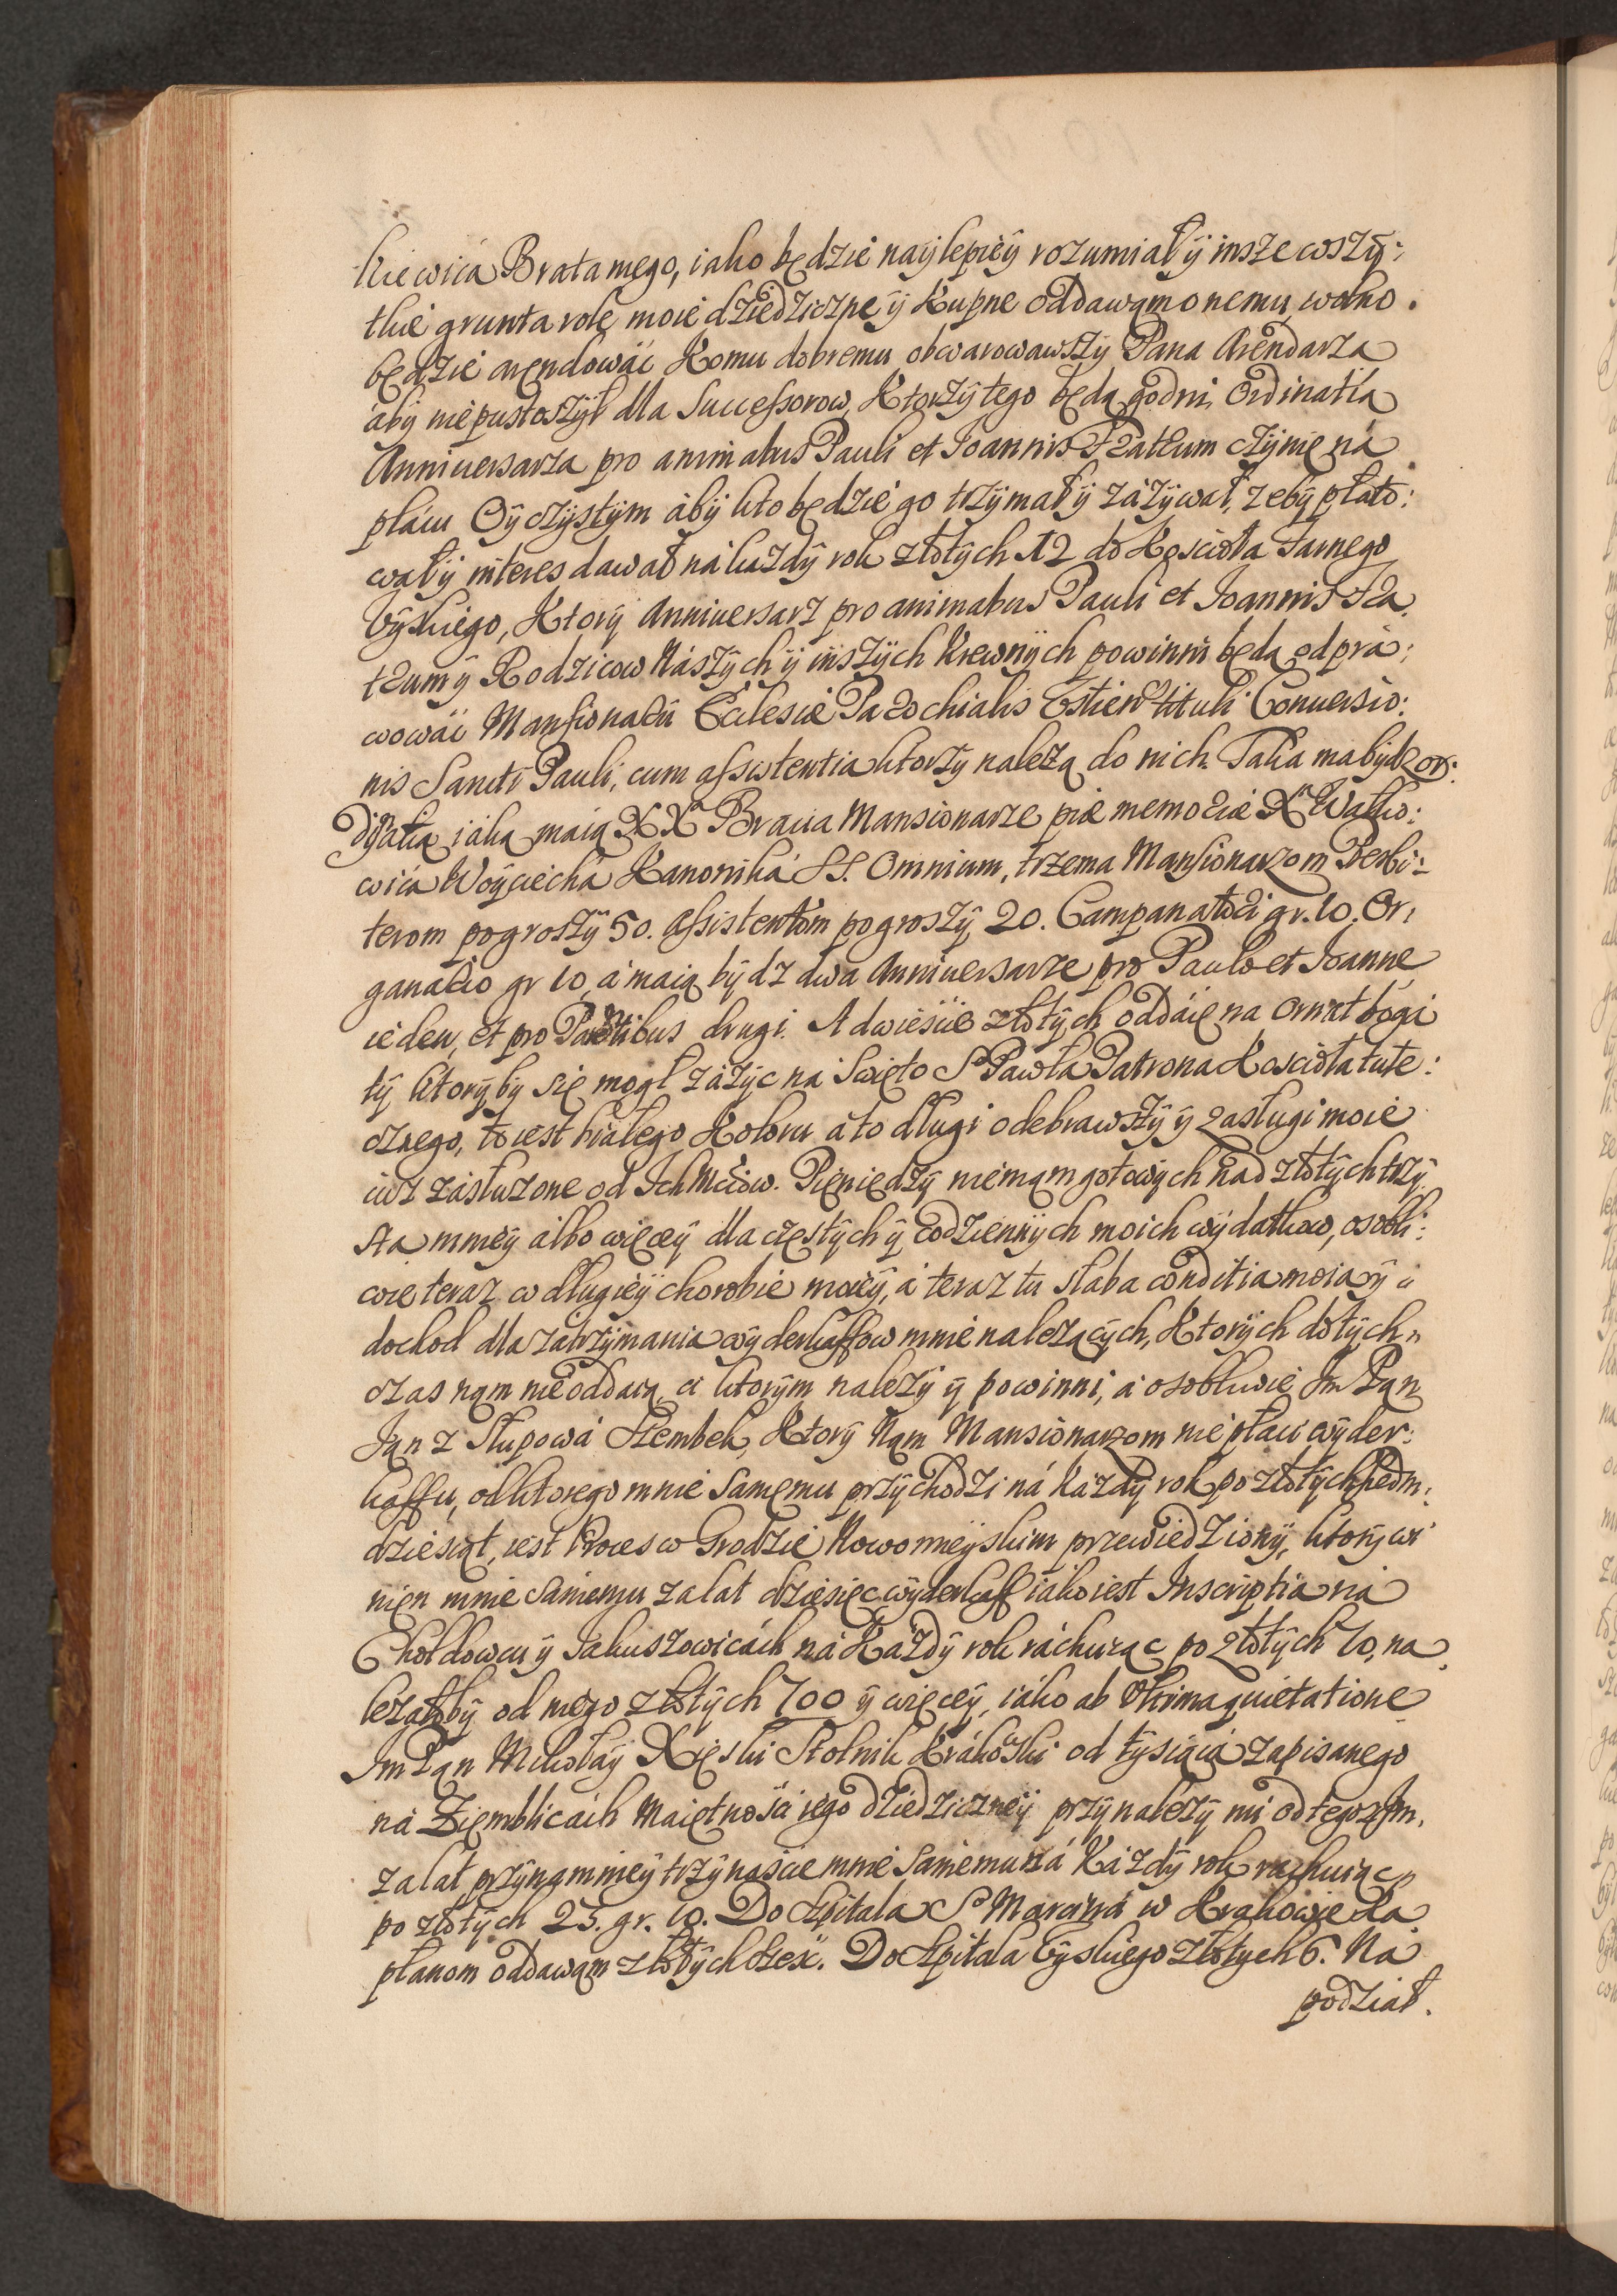 kiewica Brata mego, iako będzie naylepiey rozumiał ÿ insze wszÿ:
tkie grunta role moie dziedziczne ÿ Kupne oddawam onemu, wolno
będzie arendowác Komu dobremu obwarowawszÿ Pana Arendarza
abÿ niepustoszÿł dla Successorow, Ktorzÿ tego będą godni, Ordinatia
Anniuersarza pro animabus Pauli et Joannis Fratrum czÿnię ná
plácu Oÿczÿstÿm ábÿ kto będzie go trzÿmał ÿ záżÿwał, zebÿ płato:
wał ÿ interes dawał ná kazdÿ rok złotÿch 12 do Kościoła Farnego
Uÿskiego, Ktorÿ Anniuersarz pro animabus Pauli et Joannis Fra
trum ÿ Rodzicow Nászÿch ÿ inszÿch Krewnÿch powinni będą odprá:
wowác Mansionarii Ecclesiæ Parochialis tituli Conuersio:
nis Sancti Pauli, cum assistentia ktorzÿ należą do nich. Taka ma bÿdz or:
dÿnatia iáka maią XX Bracia Mansionarze piæ memoriæ Xa Watko:
wica Woÿciecha Kanoniká SS. Omnium, trzema Mansionarzom Presbi:
terom pogroszÿ 50. Assistentom pogroszÿ 20. Campanatori gr. 10. Or:
ganario gr 10, á maią bÿdz dwa Anniuersarze pro Paulo et Joanne
ieden, et pro Parentibus drugi. A dwiescie złotÿch oddáię na Ornat bogá
tÿ ktorÿ by się mogł záżÿc na Swięto So Pawła Patrona Kościoła tute:
cznego, to iest białego Koloru á to dlugi odebrawszÿ ÿ zasługi moie
iuz zásłuzone od Ich Mciow. Pieniędzÿ niemam gotowÿch nad złotÿch trzÿ
sta mnieÿ álbo wieceÿ dla częstÿch ÿ codziennÿch moich wÿdatkow, osobli:
wie teraz w długieÿ chorobie moieÿ, á teraz tu słaba conditia moia ÿ
dochod dla zatrzÿmania wÿderkaffow mnie nalezącÿch, Ktorÿch dotÿch
czas nąm nieoddaią, ci ktorÿm nalezÿ ÿ powinni, á osobliwie Jm Pan
Jan z Słupowá Szembek, Ktorÿ Nam Mansionarzom nie płaci wÿder:
kaffu, od ktorego mnie Samemu przÿchodzi ná Kazdÿ rok po złotÿch siedm:
dziesiąt, iest Proces w Grodzie Nowomieÿskim przewiedzionÿ, ktorÿ wi
nien mnie Samemu zalat dziesięc wÿderkaff iako iest Inscriptia ná
Chołdowcu ÿ Jakuszowicách ná Kazdÿ rok ráchuiąc po złotÿch 70, na
lezałobÿ od niego złotÿch 700 ÿ więceÿ, iáko ab Ultima quietatione
Jm Pan Mikołaÿ Xięski Stolnik Krákowski od tÿsiącá zapisanego
ná Ziemblicách Maiętności iego dziedziczneÿ przÿnalezÿ mi od tegoz Jm.
zalat przÿnamnieÿ trzÿnaście mnie Samemu ná Kázdÿ rok rachuiąc
po złotÿch 23. gr. 10. Do Szpitala So Marciná w Krakowie Ka
płanom oddawąm złotÿch szesc. Do Szpitala Uÿskiego złotych 6. Ná
podział.